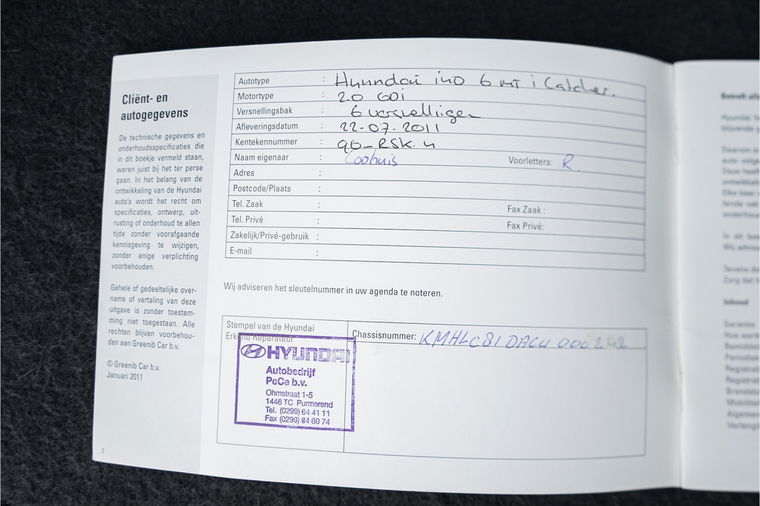 Cliënt- en
autogegevens
De technische gegevens en
onderhoudsspecificaties die
in dit boekje vermeld staan,
waren juist bij het ter perse
gaan. In het belang van de
ontwikkeling van de Hyundai
auto's wordt het recht om
specificaties, ontwerp, uit-
rusting of onderhoud te allen
tijde zonder voorafgaande
kennisgeving te wijzigen,
zonder enige verplichting
voorbehouden.
Gehele of gedeeltelijke over-
name of vertaling van deze
uitgave is zonder toestem-
ming niet toegestaan. Alle
rechten blijven voorbehou-
den aan Greenib Car b.v.
© Greenib Car b.v.
Januari 2011
Autotype : Hyundai i40 6 MT i Catcher.
Motortype : 2.0 GDi
Versnellingsbak : 6 versnellingen
Afleveringsdatum : 22-07-2011
Kentekennummer :
Naam eigenaar : Voorletters: R.
Adres :
Postcode/Plaats :
Tel. Zaak : Fax Zaak :
Tel. Privé : Fax Privé:
Zakelijk/Privé-gebruik :
E-mail :
Wij adviseren het sleutelnummer in uw agenda te noteren.
Stempel van de Hyundai
Erkend Reparateur
Chassisnummer:
HYUNDAI
Autobedrijf
PeCe b.v.
Ohmstraat 1-5
1446 TC Purmerend
Tel. (0299) 64 41 11
Fax (0299) 64 60 74
Inhoud